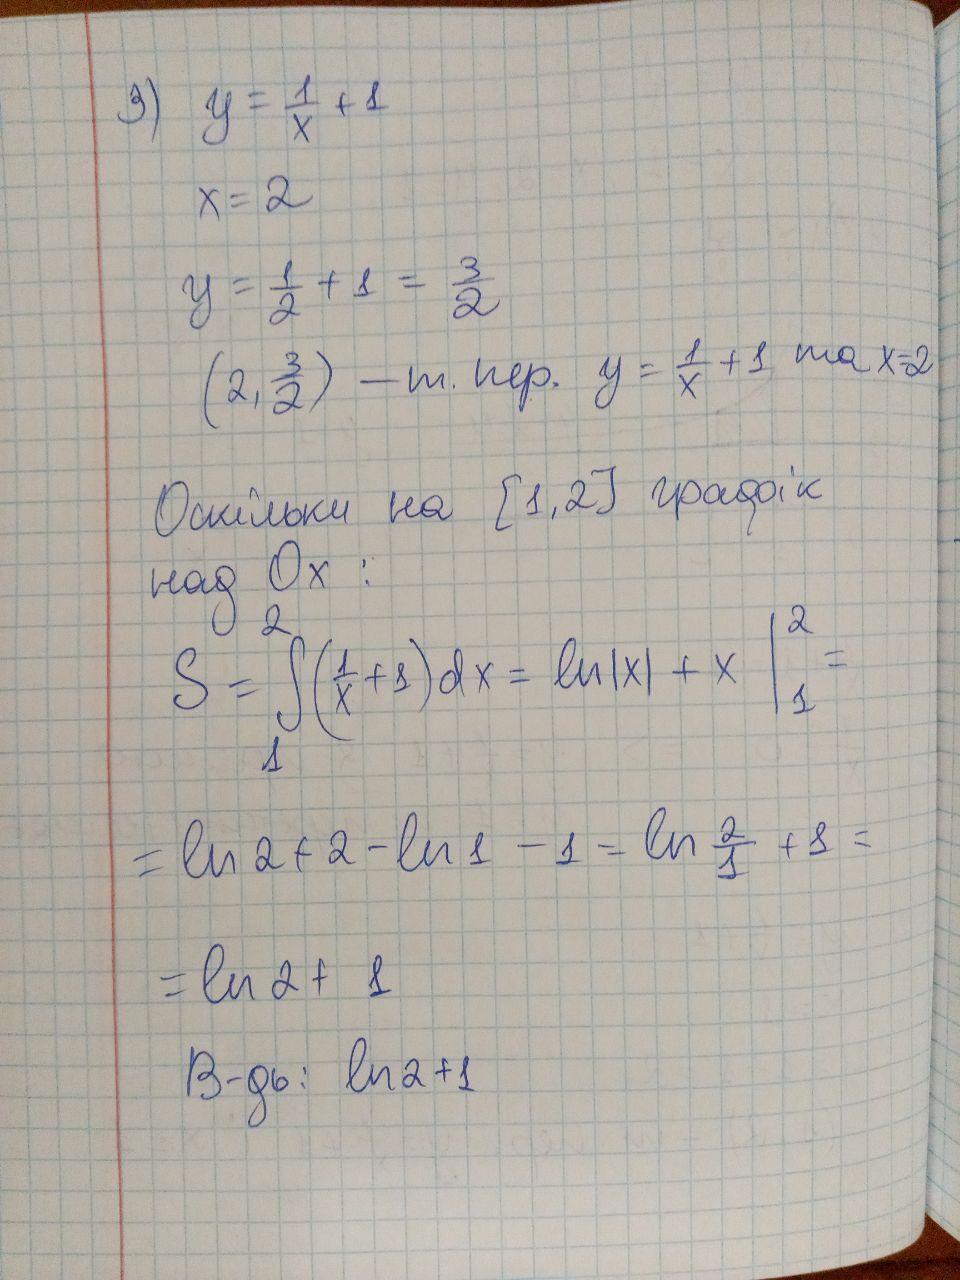 3) y = 1/x + 1
x = 2
y = 1/2 + 1 = 3/2
(2, 3/2) – т. пер. y = 1/x + 1 та x=2
Оскільки на [1,2] графік
над Ox :
S = ∫₁² (1/x + 1) dx = ln|x| + x |₁² =
= ln 2 + 2 - ln 1 - 1 = ln 2/1 + 1 =
= ln 2 + 1
В-дь: ln 2 + 1